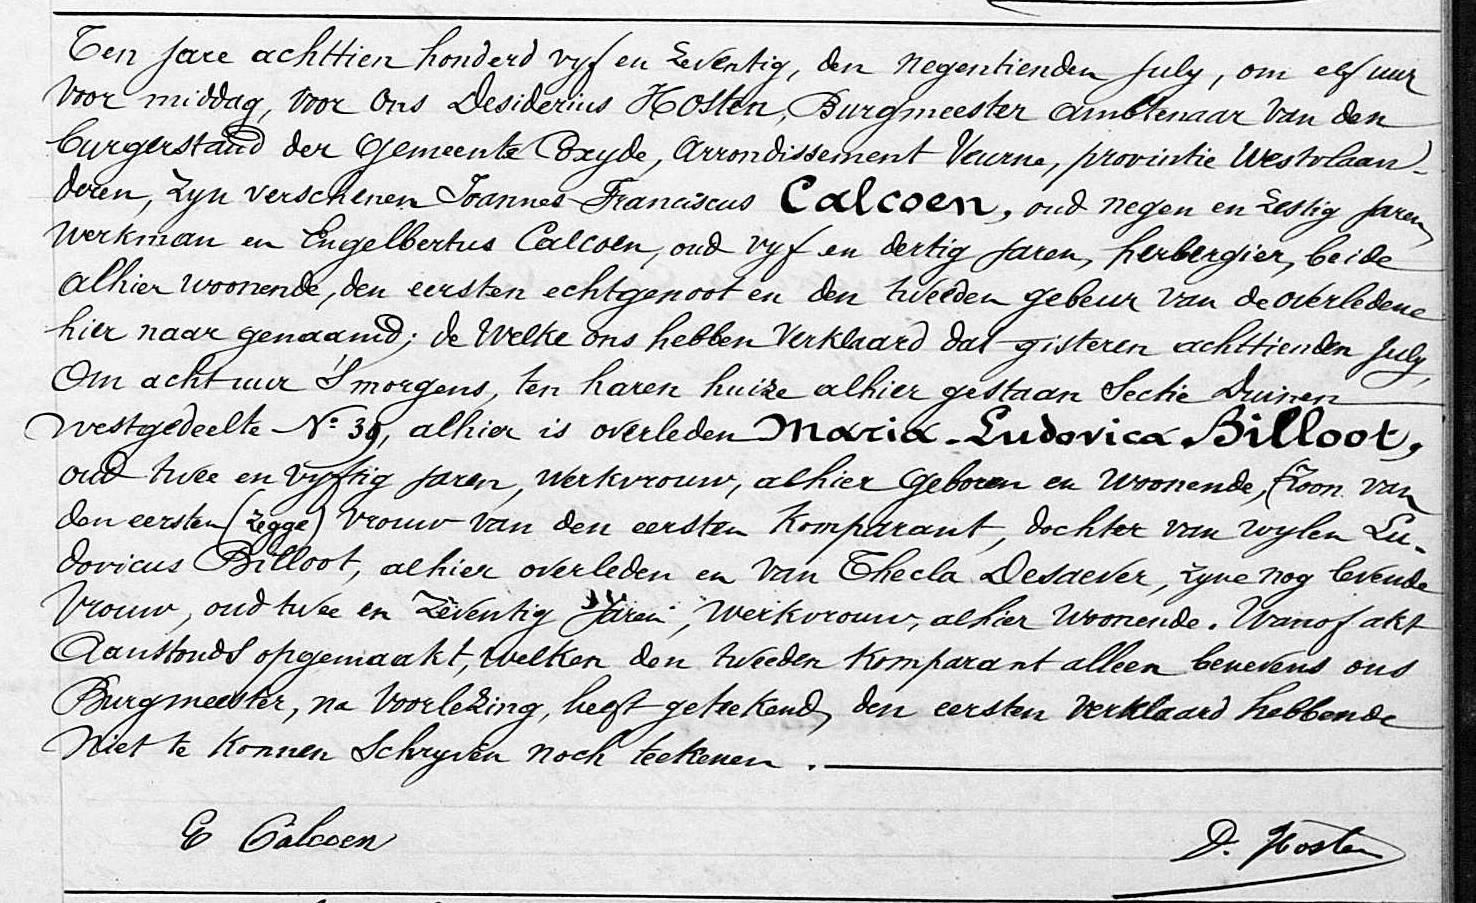 Ten jare achttien honderd vyf en zeventig, den negentienden July, om elf uur
voor middag, voor ons Desiderius Hosten, Burgmeester ambtenaar van den
burgerstand der gemeente Coxyde, arrondissement Veurne, provintie Westvlaan-
deren, zyn verschenen Joannes Franciscus Calcoen, oud negen en zestig jaren,
werkman en Engelbertus Calcoen, oud vyf en dertig jaren, herbergier, beide
alhier woonende, den eersten echtgenoot en den tweeden gebeur van de overledene
hier naar genaamd; de welke ons hebben verklaard dat gisteren achttienden July,
om acht uur 's morgens, ten haren huize alhier gestaan Sectie Duinen
westgedeelte No 39, alhier is overleden Maria-Ludovica Billoot,
oud twee en vyftig jaren, werkvrouw, alhier geboren en woonende, (zoon van
den eersten (zegge) vrouw van den eersten komparant, dochter van wylen Lu-
dovicus Billoot, alhier overleden en van Thecla Desaever, zyne nog levende
vrouw, oud twee en zeventig jaren, werkvrouw, alhier woonende. Wanof akt
aanstonds opgemaakt, welken den tweeden komparant alleen benevens ons
Burgmeester, na voorlezing, heeft geteekend, den eersten verklaard hebbende
niet te konnen schryven noch teekenen.
E Calcoen
D. Hosten